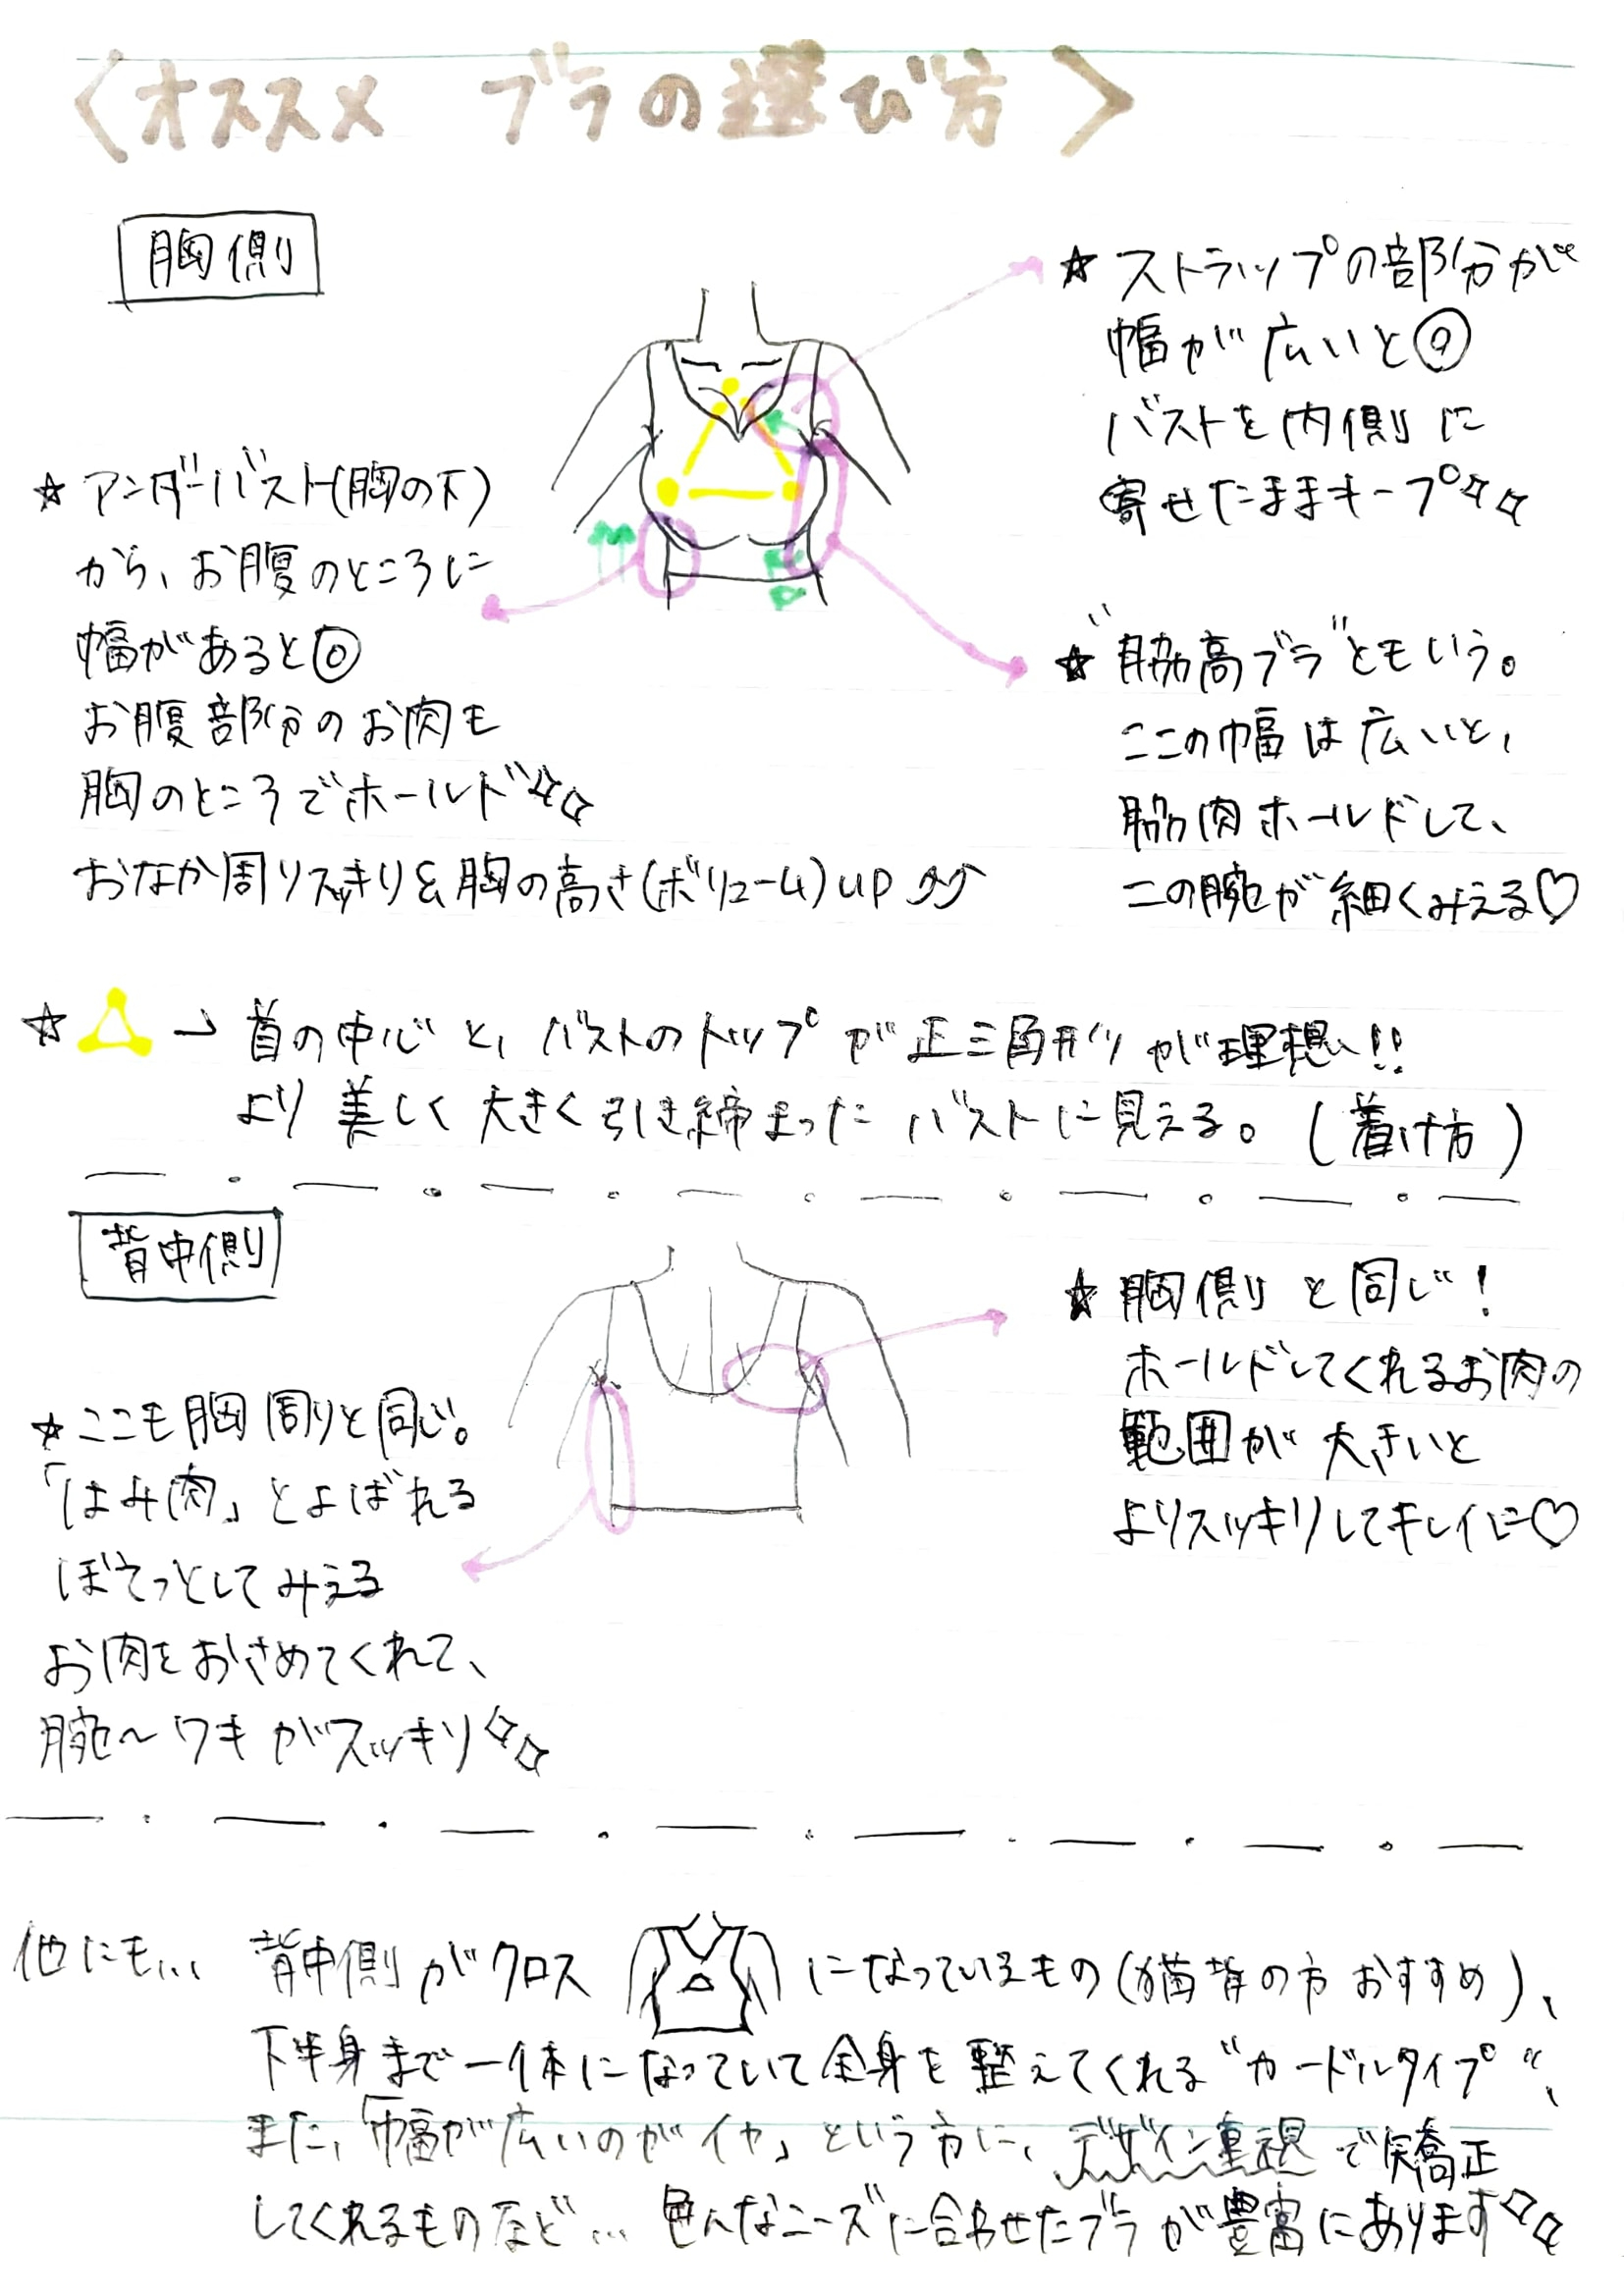 〈オススメ ブラの選び方〉
胸側
☆ ストラップの部分が
幅が広いと◎
バストを内側に
寄せたままキープ✧✧
☆ アンダーバスト(胸の下)
から、お腹のところに
幅があると◎
お腹部分のお肉も
胸のところでホールド✧✧
おなか周りスッキリ&胸の高さ(ボリューム)up⤴⤴
☆ "脇高ブラ"ともいう。
ここの幅は広いと、
脇肉ホールドして、
二の腕が細くみえる♡
☆ △ → 首の中心と、バストのトップが正三角形が理想!!
より美しく大きく引き締まったバストに見える。(着け方)
背中側
☆ 胸側と同じ!
ホールドしてくれるお肉の
範囲が大きいと
よりスッキリしてキレイに♡
☆ ここも胸周りと同じ。
「はみ肉」とよばれる
ぼてっとしてみえる
お肉をおさめてくれて、
腕〜ワキがスッキリ✧✧
他にも... 背中側がクロス になっているもの(猫背の方おすすめ)、
下半身まで一体になっていて全身を整えてくれる"ガードルタイプ"、
また、「幅が広いのがイヤ」という方に、デザイン重視で矯正
してくれるものなど... 色んなニーズに合わせたブラが豊富にあります✧✧